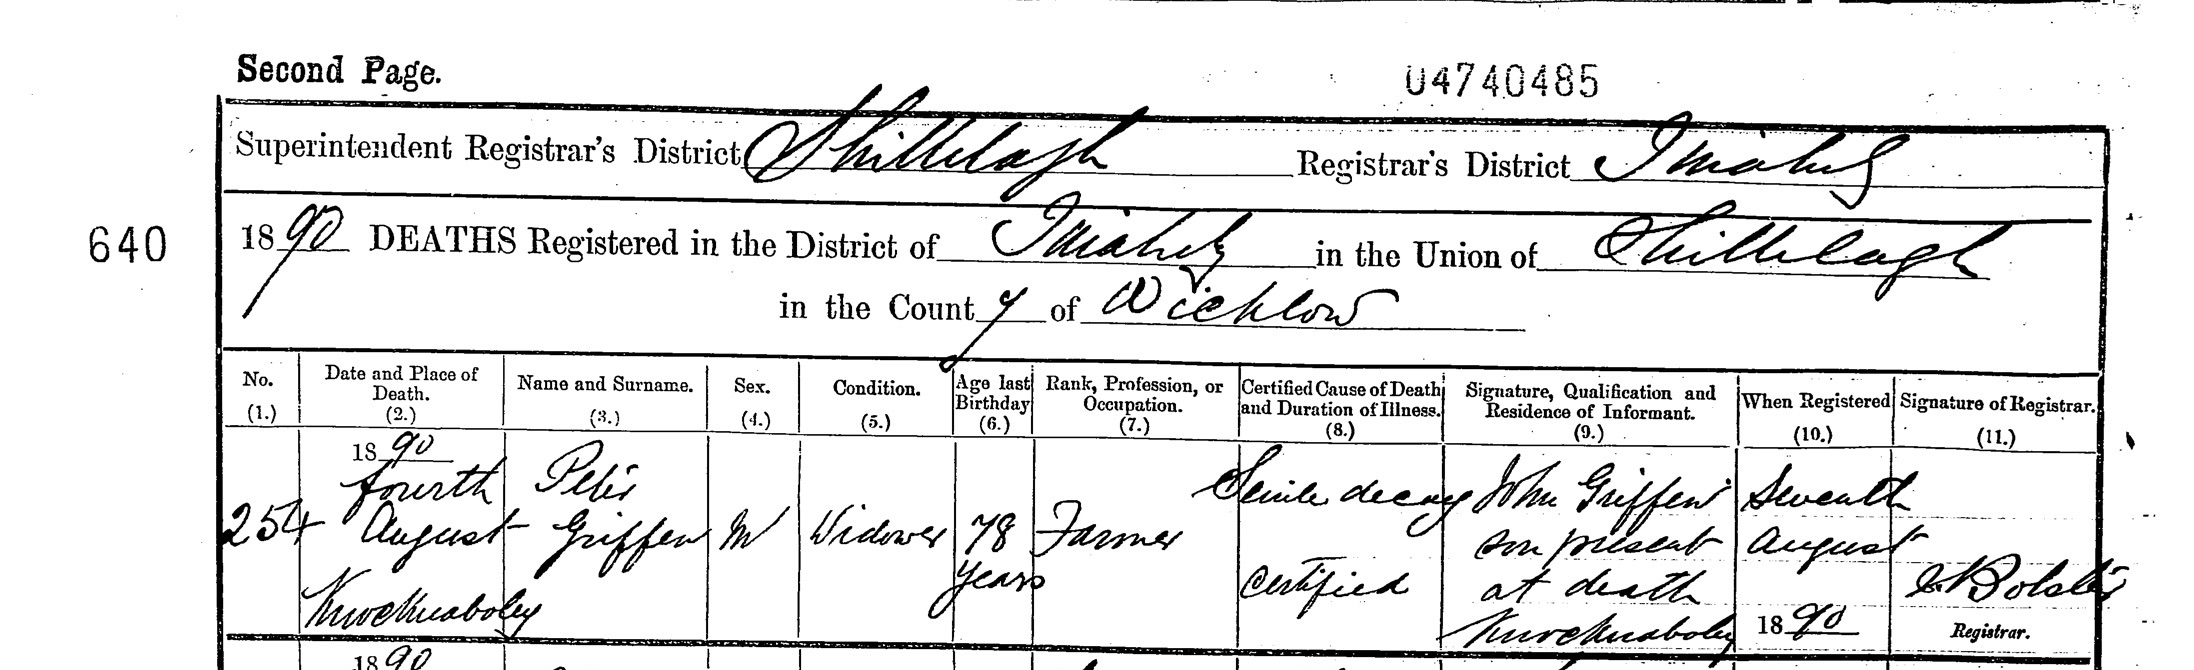 Second Page.
04740485
Superintendent Registrar's District Shillelagh Registrar's District Tinahely
640
1890 DEATHS Registered in the District of Tinahely in the Union of Shillelagh
in the County of Wicklow
No. (1.)
Date and Place of Death. (2.)
Name and Surname. (3.)
Sex. (4.)
Condition. (5.)
Age last Birthday (6.)
Rank, Profession, or Occupation. (7.)
Certified Cause of Death and Duration of Illness. (8.)
Signature, Qualification and Residence of Informant. (9.)
When Registered (10.)
Signature of Registrar. (11.)
254
1890
fourth
August
Knocknaboley
Peter
Griffen
M
Widower
78
years
Farmer
Senile decay
certified
John Griffen
son present
at death
Knocknaboley
Seventh
August
1890
Bolster
Registrar.
1890